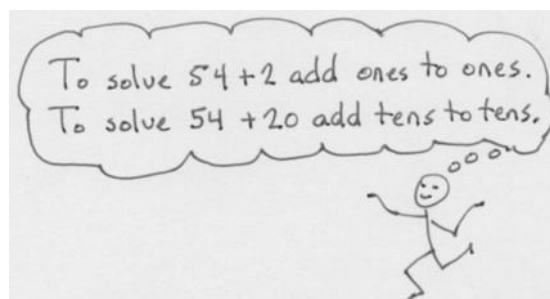 To solve 54+2 add ones to ones.
To solve 54 +20 add tens to tens.